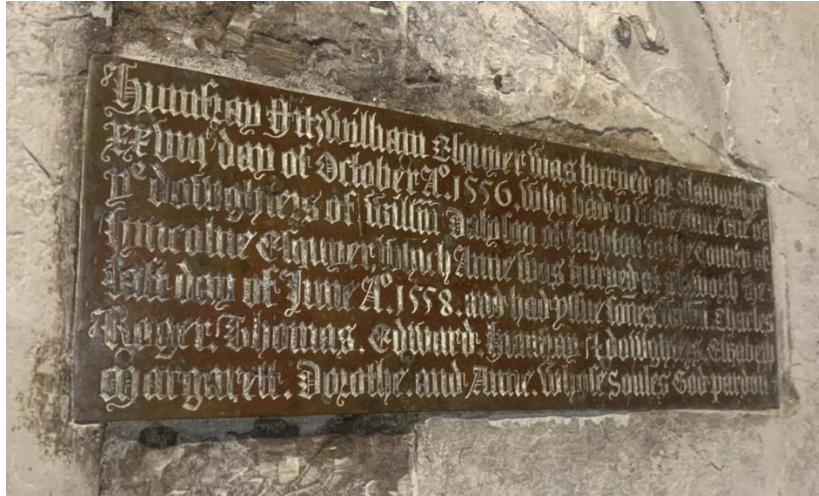 Humfray Fitzwilliam Esquyer was buryed at Claworth yᵉ
XXVIIJ day of October Aᵒ. 1556, who had to wife Anne one of
yᵉ doughters of Willm Dalyson of laghton in yᵉ County of
Lyncolne Esquyer which Anne was buryed at the
last day of June Aᵒ. 1558. and had yssue sones Willm Charles
Roger. Thomas. Edward. Humfray & doughters. Elizabeth
Margarett. Dorothe. and Anne. whose Soules God pardon